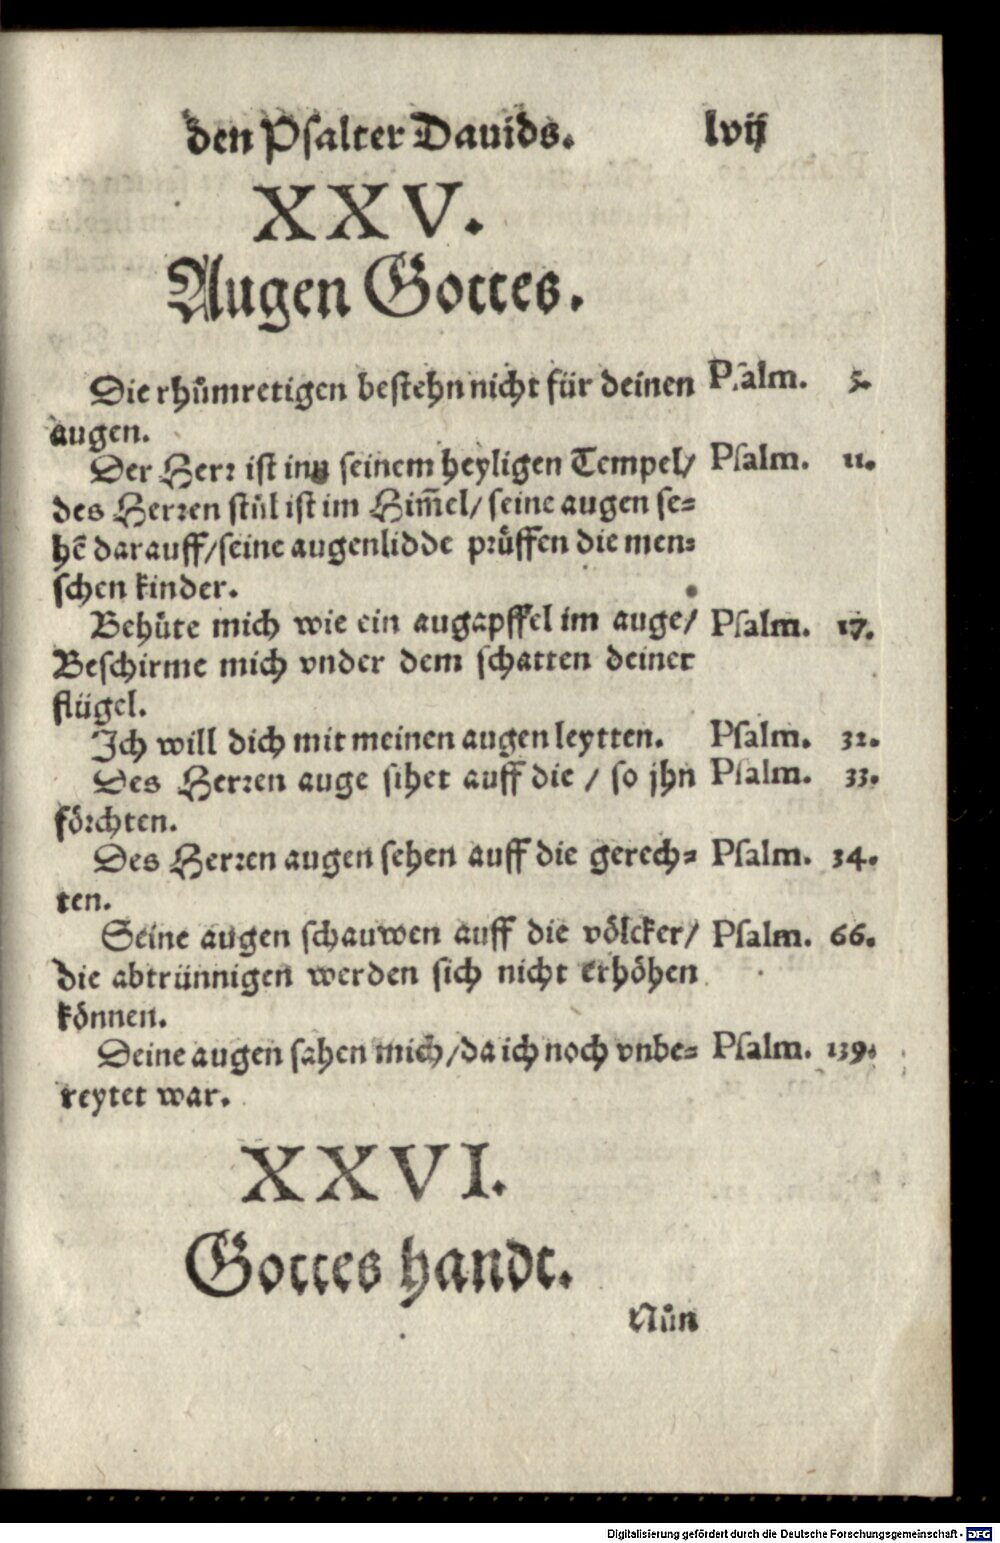 den Psalter Dauids. lvij
XXV.
Augen Gottes.
Die rhůmretigen bestehn nicht für deinen Psalm. 5.
augen.
Der Herr ist inn seinem heyligen Tempel/ Psalm. 11.
des Herren stůl ist im Him̃el/ seine augen se=
hẽ darauff/ seine augenlidde prüffen die men=
schen kinder.
Behüte mich wie ein augapffel im auge/ Psalm. 17.
Beschirme mich vnder dem schatten deiner
flügel.
Ich will dich mit meinen augen leytten. Psalm. 32.
Des Herren auge sihet auff die / so jhn Psalm. 33.
förchten.
Des Herren augen sehen auff die gerech= Psalm. 34.
ten.
Seine augen schauwen auff die völcker/ Psalm. 66.
die abtrünnigen werden sich nicht erhöhen
können.
Deine augen sahen mich/ da ich noch vnbe= Psalm. 139.
reytet war.
XXVI.
Gottes handt.
Nůn
Digitalisierung gefördert durch die Deutsche Forschungsgemeinschaft - DFG